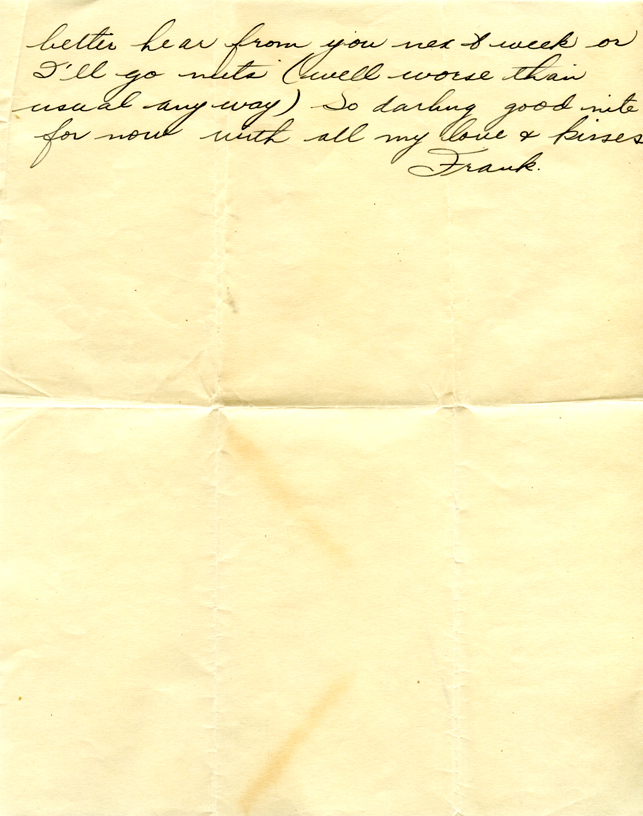 better hear from you next week or
I'll go nuts (well worse than
usual any way) So darling good nite
for now with all my love & kisses
Frank.